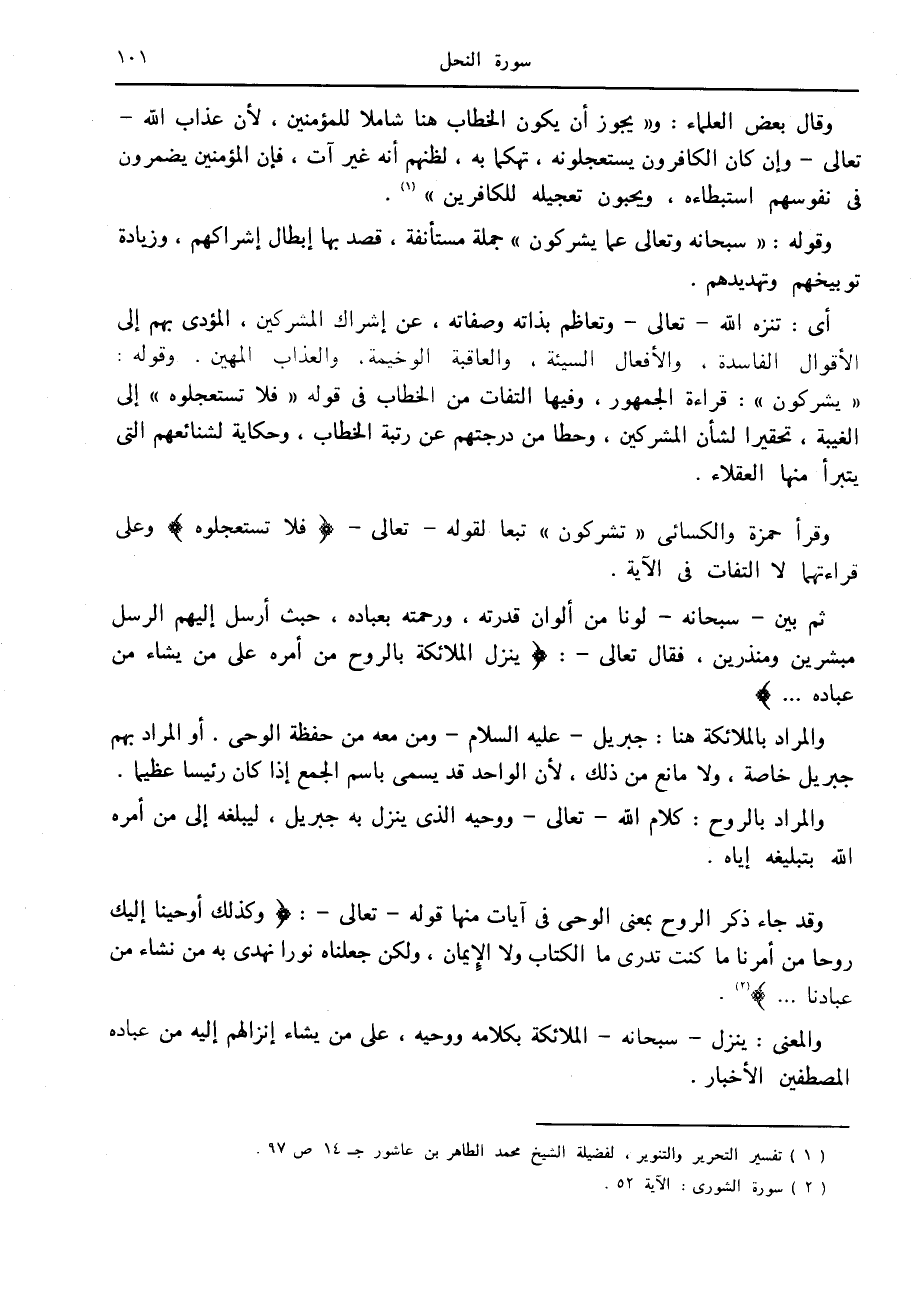 سورة النحل ١٠١
وقال بعض العلماء : و« يجوز أن يكون الخطاب هنا شاملا للمؤمنين ، لأن عذاب الله –
تعالى – وإن كان الكافرون يستعجلونه ، تهكما به ، لظنهم أنه غير آت ، فإن المؤمنين يضمرون
فى نفوسهم استبطاءه ، ويحبون تعجيله للكافرين » (١) .
وقوله : « سبحانه وتعالى عما يشركون » جملة مستأنفة ، قصد بها إبطال إشراكهم ، وزيادة
توبيخهم وتهديدهم .
أى : تنزه الله – تعالى – وتعاظم بذاته وصفاته ، عن إشراك المشركين ، المؤدى بهم إلى
الأقوال الفاسدة ، والأفعال السيئة ، والعاقبة الوخيمة، والعذاب المهين . وقوله :
« يشركون » : قراءة الجمهور ، وفيها التفات من الخطاب فى قوله « فلا تستعجلوه » إلى
الغيبة ، تحقيرا لشأن المشركين ، وحطا من درجتهم عن رتبة الخطاب ، وحكاية لشنائعهم التى
يتبرأ منها العقلاء .
وقرأ حمزة والكسائى « تشركون » تبعا لقوله – تعالى – ﴿ فلا تستعجلوه ﴾ وعلى
قراءتهما لا التفات فى الآية .
ثم بين – سبحانه – لونا من ألوان قدرته ، ورحمته بعباده ، حيث أرسل إليهم الرسل
مبشرين ومنذرين ، فقال تعالى – : ﴿ ينزل الملائكة بالروح من أمره على من يشاء من
عباده ... ﴾
والمراد بالملائكة هنا : جبريل – عليه السلام – ومن معه من حفظة الوحى . أو المراد بهم
جبريل خاصة ، ولا مانع من ذلك ، لأن الواحد قد يسمى باسم الجمع إذا كان رئيسا عظيما .
والمراد بالروح : كلام الله – تعالى – ووحيه الذى ينزل به جبريل ، ليبلغه إلى من أمره
الله بتبليغه إياه .
وقد جاء ذكر الروح بمعنى الوحى فى آيات منها قوله – تعالى – : ﴿ وكذلك أوحينا إليك
روحا من أمرنا ما كنت تدرى ما الكتاب ولا الإيمان ، ولكن جعلناه نورا نهدى به من نشاء من
عبادنا ... ﴾(٢) .
والمعنى : ينزل – سبحانه – الملائكة بكلامه ووحيه ، على من يشاء إنزالهم إليه من عباده
المصطفين الأخبار .
( ١ ) تفسير التحرير والتنوير ، لفضيلة الشيخ محمد الطاهر بن عاشور جـ ١٤ ص ٩٧ .
( ٢ ) سورة الشورى : الآية ٥٢ .